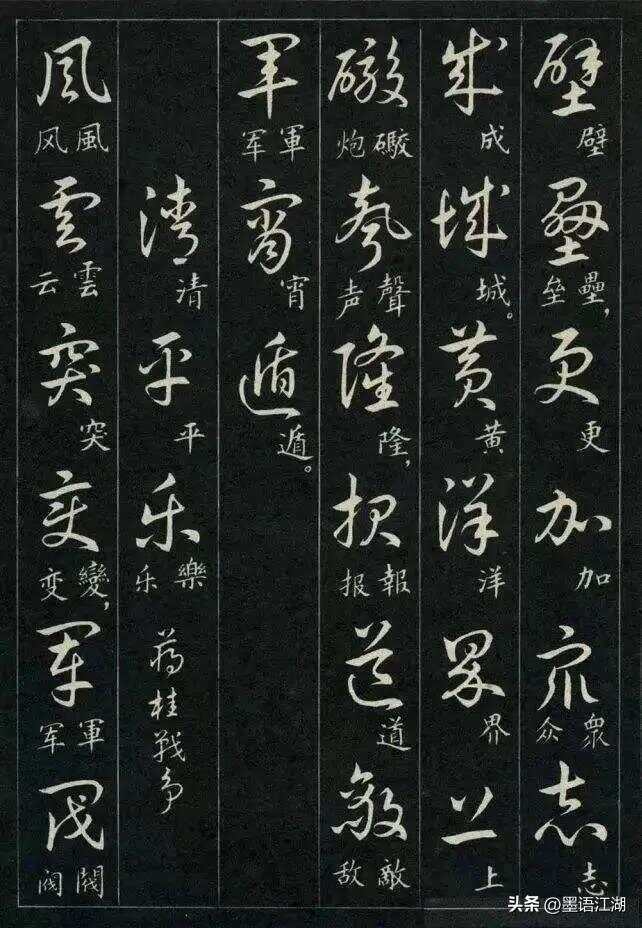 壁壘更加衆志
壁壘，垒更加衆众志
成城黄洋界上
成城。黄洋界上
礮聲隆报道敵
礮炮聲声隆，報报道敵敌
軍宵遁
軍军宵遁。
清平乐
清平樂乐
蒋桂战争
风云突变军阀
風风雲云突變，变軍军閥阀
头条 @墨语江湖